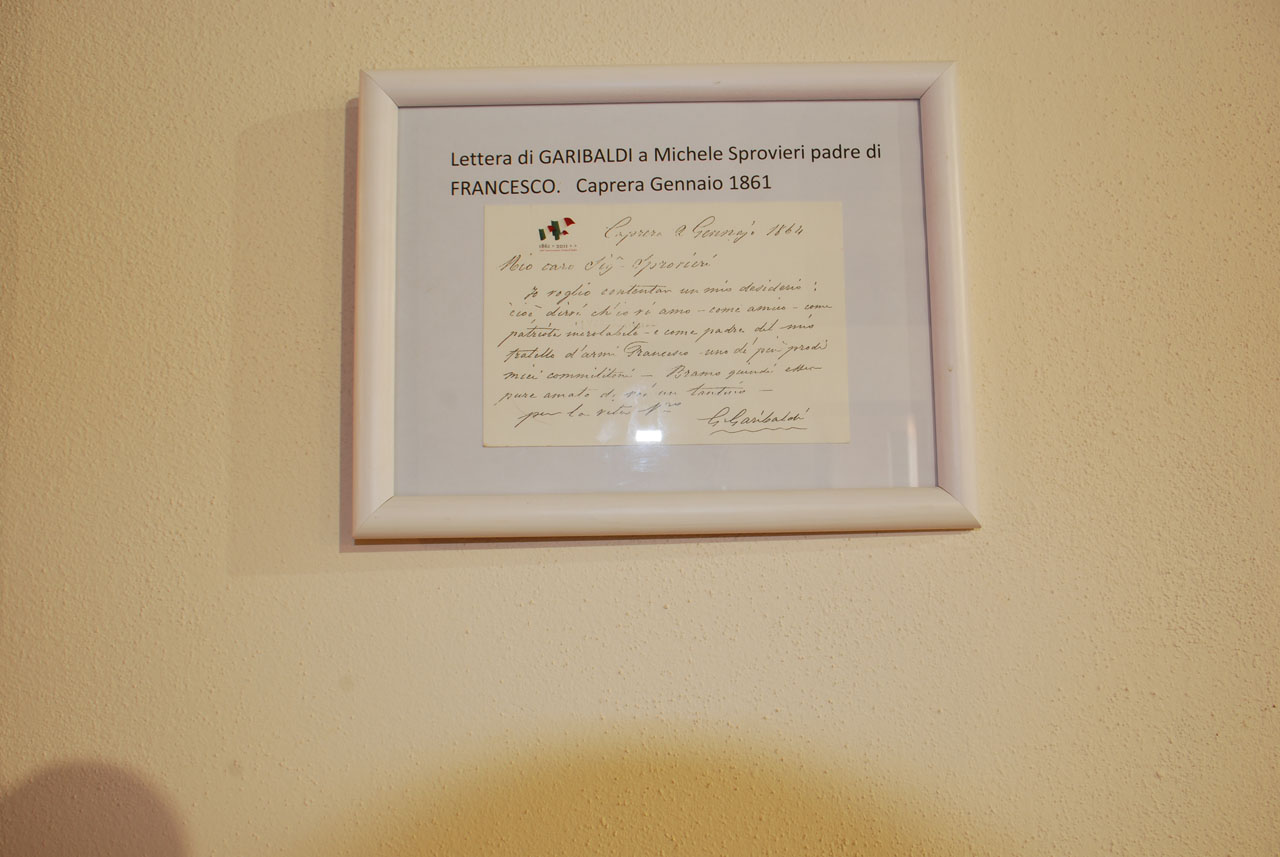 Lettera di GARIBALDI a Michele Sprovieri padre di
FRANCESCO. Caprera Gennaio 1861
1861 • 2011 • •
Caprera 2 Gennajo 1864
Mio caro Sigr Sprovieri
Io voglio contentar un mio desiderio :
cioè dirvi ch'io vi amo - come amico - come
patriota - e come padre del mio
fratello d'armi Francesco uno de' più prodi
miei commilitoni — Bramo quindi esser
pure amato da voi un tantino —
per la vita Vro
G Garibaldi